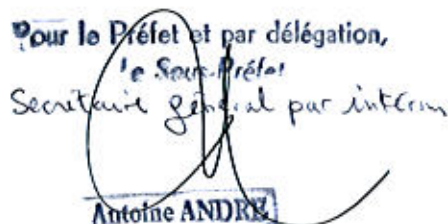 Pour le Préfet et par délégation,
le Sous-Préfet
Secrétaire général par intérim
Antoine ANDRE